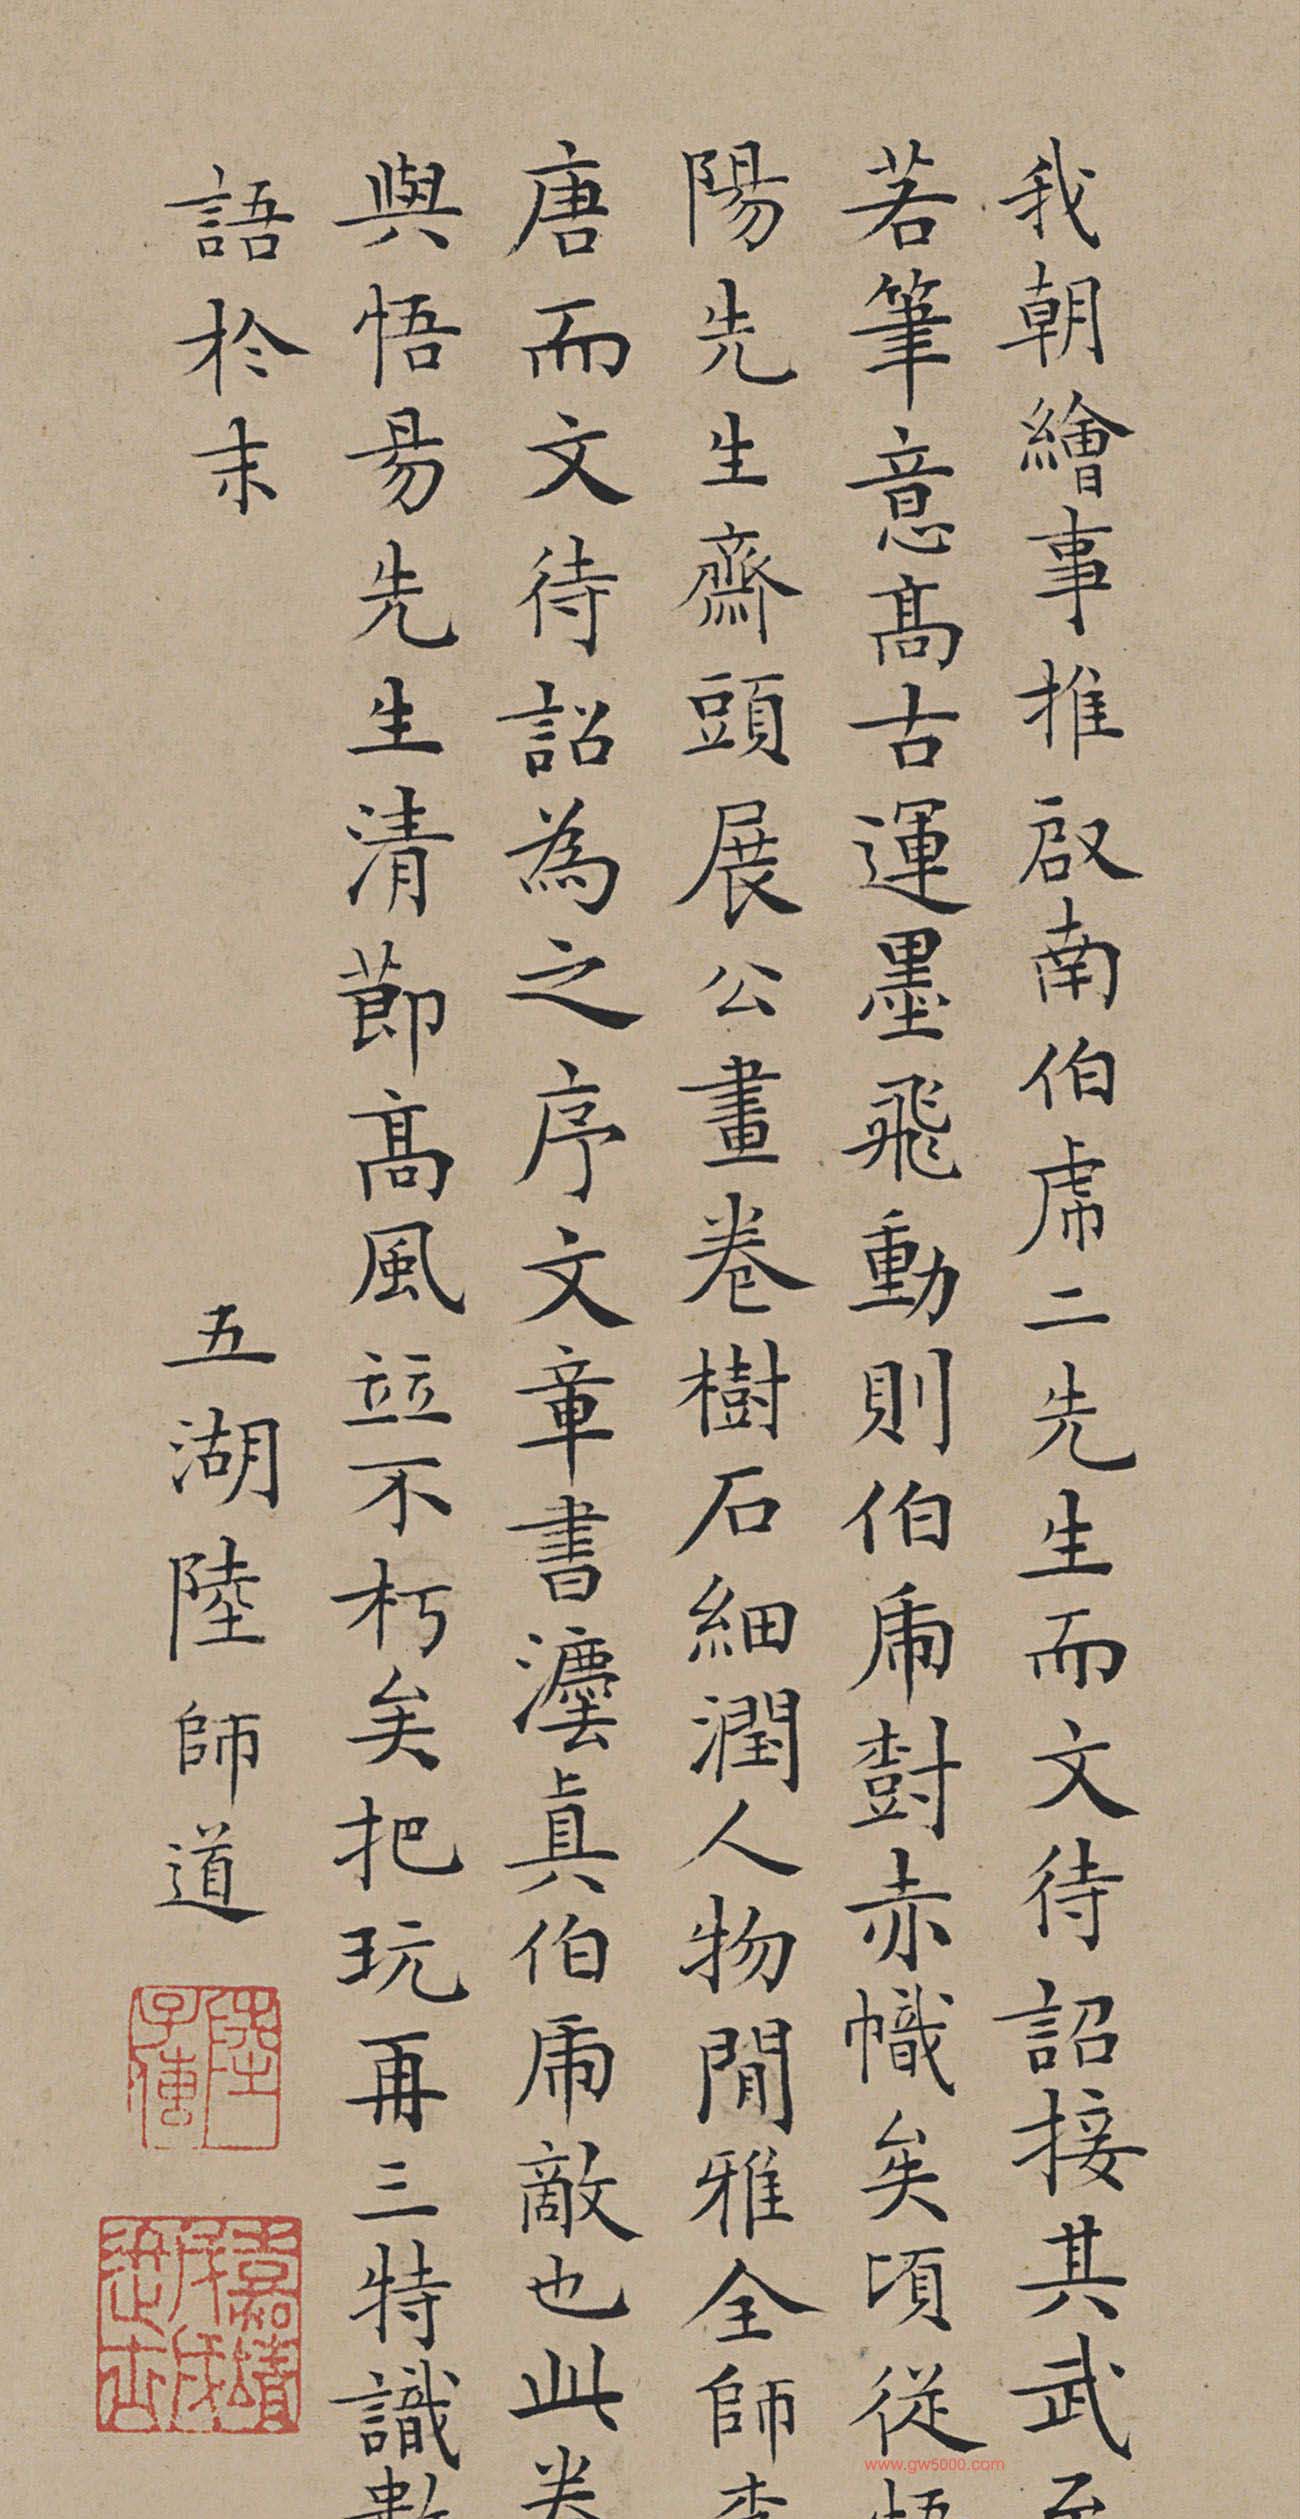 我朝繪事推啟南伯虎二先生而文待詔接其武至
若筆意髙古運墨飛動則伯虎樹赤幟矣頃從悟
陽先生齋頭展公畫卷樹石細潤人物閒雅全師李
唐而文待詔為之序文章書灋真伯虎敵也此卷
與悟昜先生清節髙風竝不朽矣把玩再三特識數
語於末
五湖陸師道
陸子傳
嘉靖戊戌進士
www.gw5000.com